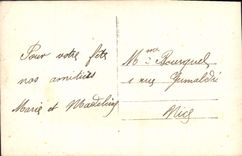 Pour votre fête
nos amitiés
Marie et Madeleine
Mme Bourquel
1 rue Grimaldi
Nice